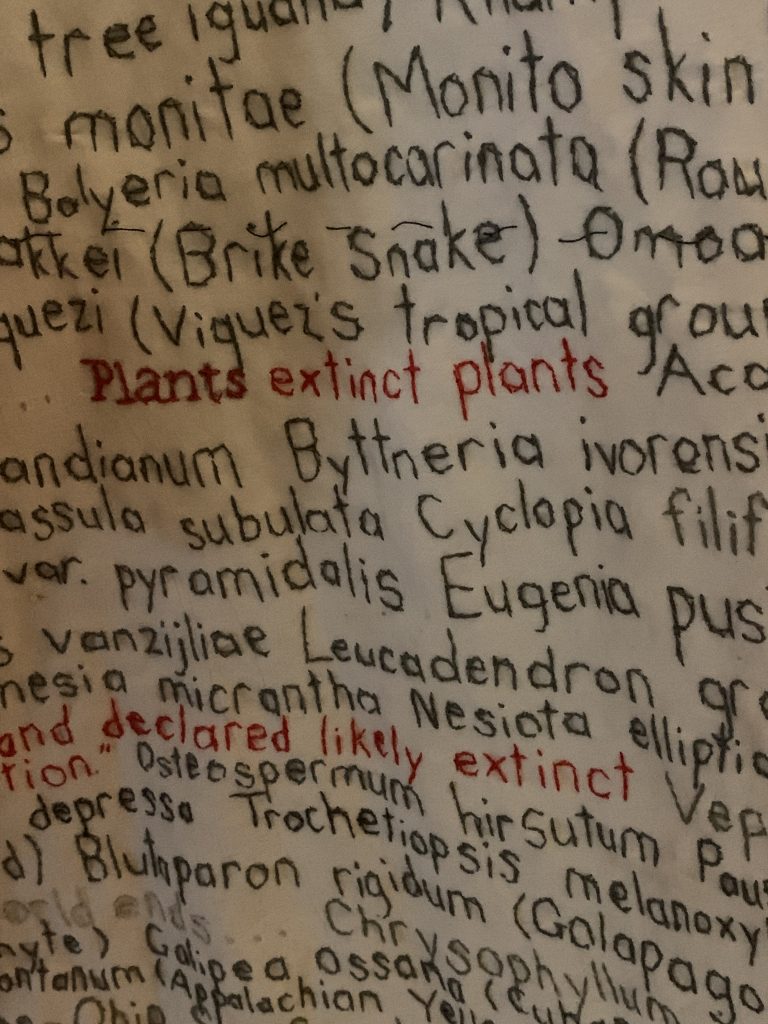 tree iguana)
s monitae (Monito skin
Bolyeria multocarinata (Rou
akkei (Brike Snake) Omoa
quezi (Viquez's tropical grou
.. Plants extinct plants Aca
andianum Byttneria ivorensi
assula subulata Cyclopia filif
var. pyramidalis Eugenia pus
s vanzijliae Leucadendron gr
nesia micrantha Nesiota elliptic
and declared likely extinct Vep
tion." Osteospermum hirsutum Pau
depressa Trochetiopsis melanoxy
d) Blutaparon rigidum (Galapago
orld ends.... Chrysophyllum
hyte) Galipea ossana (Cub
ontanum (Appalachian Yell
Ohio